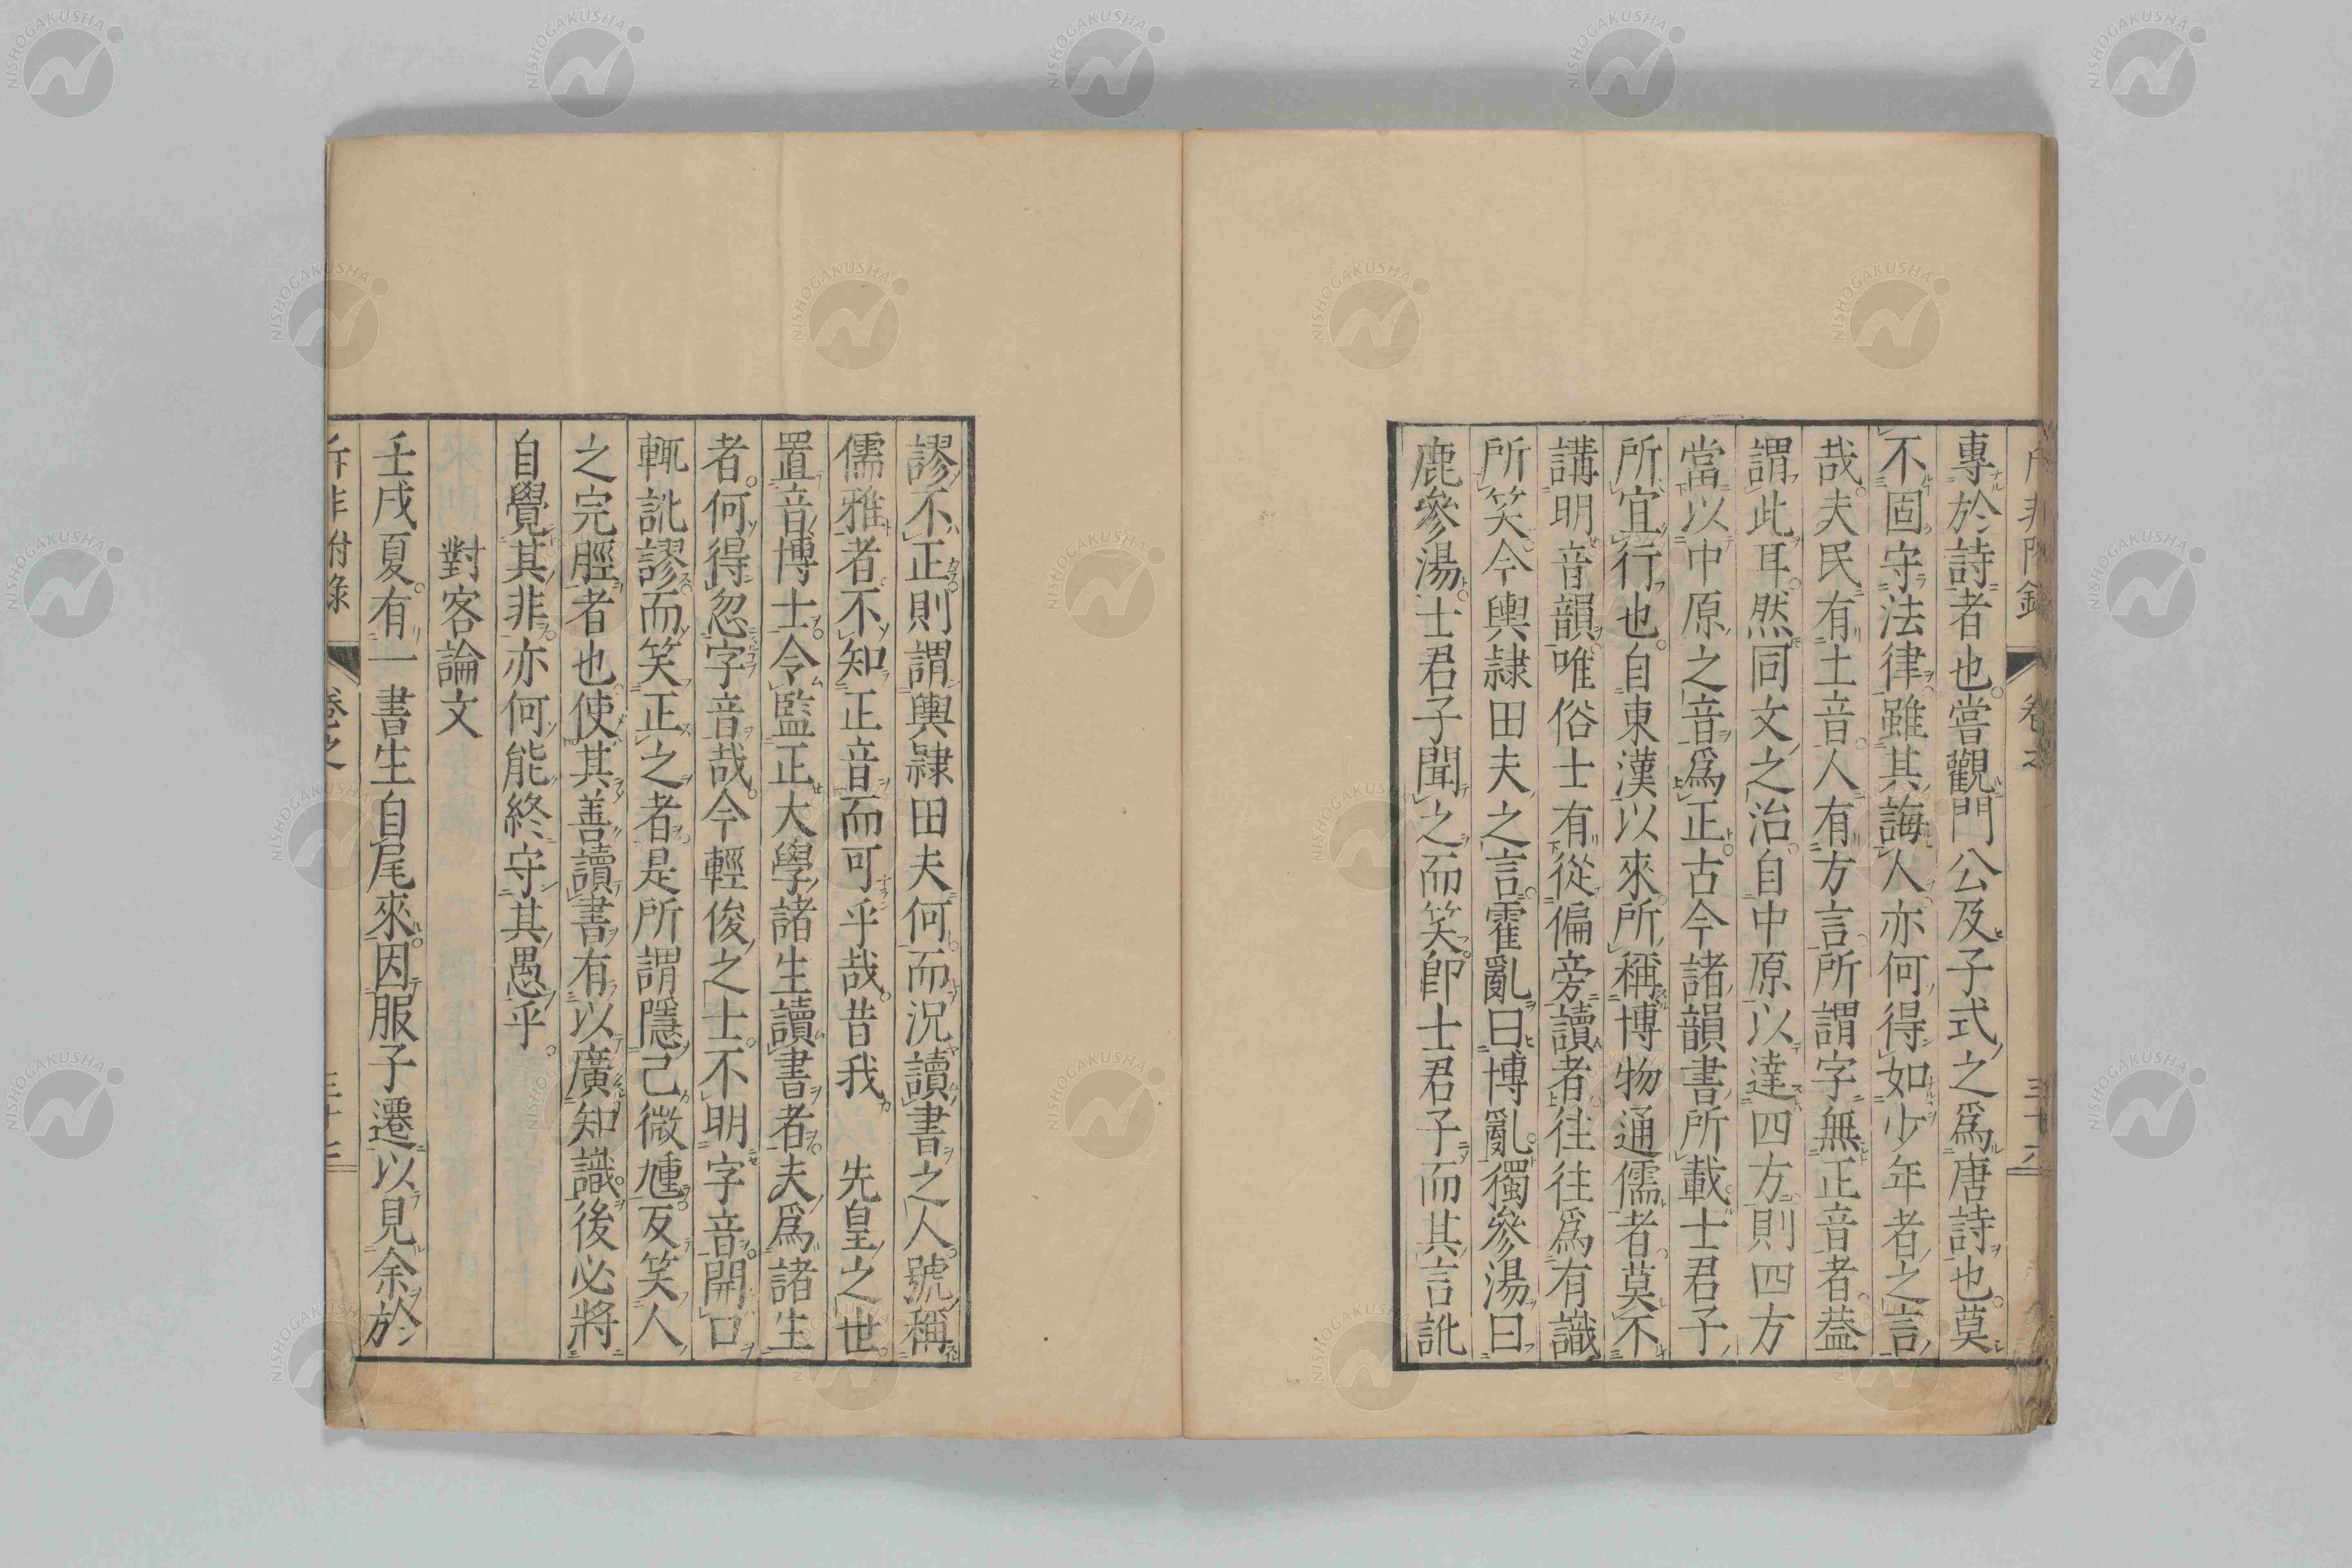 專於詩者也。嘗觀門公及子式之爲唐詩也。莫
不固守法律雖其誨人亦何得如少年者之言
哉。夫民有土音。人有方言。所謂字無正音者。葢
謂此耳。然同文之治。自中原以達四方。則四方
當以中原之音爲正。古今諸韻書所載。士君子
所宜行也。自東漢以來。所稱博物通儒者。莫不
講明音韻。唯俗士有從偏旁讀者。往往爲有識
所笑。今輿隷田夫之言。霍亂曰博亂。獨參湯曰
鹿參湯。士君子聞之而笑。卽士君子而其言訛
謬不正。則謂輿隷田夫何。而況讀書之人。號稱
儒雅者。不知正音而可乎哉。昔我 先皇之世。
置音博士。令監正大學諸生讀書者。夫爲諸生
者。何得忽字音哉。今輕俊之士。不明字音。開口
輒訛謬。而笑正之者。是所謂隱己微尰。反笑人
之完脛者也。使其善讀書有以廣知識。後必將
自覺其非。亦何能終守其愚乎。
對客論文
壬戌夏。有一書生自尾來。因服子遷以見余於
斥非附錄 卷之 三十七